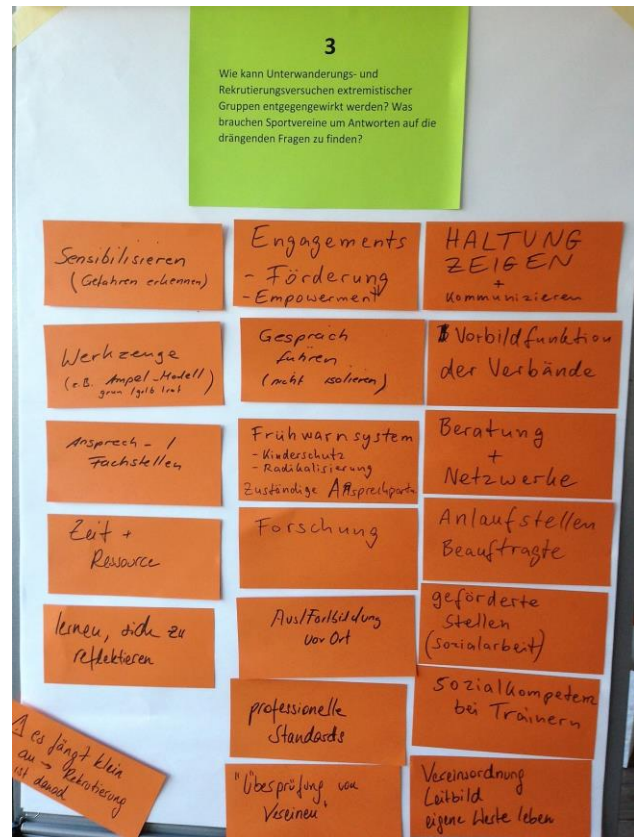 3
Wie kann Unterwanderungs- und
Rekrutierungsversuchen extremistischer
Gruppen entgegengewirkt werden? Was
brauchen Sportvereine um Antworten auf die
drängenden Fragen zu finden?
Sensibilisieren
(Gefahren erkennen)
Werkzeuge
(z.B. Ampel-Modell)
grün/gelb/rot
Ansprech- /
Fachstellen
Zeit +
Ressource
lernen, sich zu
reflektieren
es fängt klein
an → Rekrutierung
ist
Engagements
- Förderung
- Empowerment
Gespräch
führen
(nicht isolieren)
Frühwarnsystem
- Kinderschutz
- Radikalisierung
Zuständige Ansprechpartn
Forschung
Aus/Fortbildung
vor Ort
professionelle
Standards
"Überprüfung von
Vereinen"
HALTUNG
ZEIGEN
+
Kommunizieren
Vorbildfunktion
der Verbände
Beratung
+
Netzwerke
Anlaufstellen
Beauftragte
geförderte
Stellen
(Sozialarbeit)
Sozialkompetenz
bei Trainern
Vereinsordnung
Leitbild
eigene Werte leben